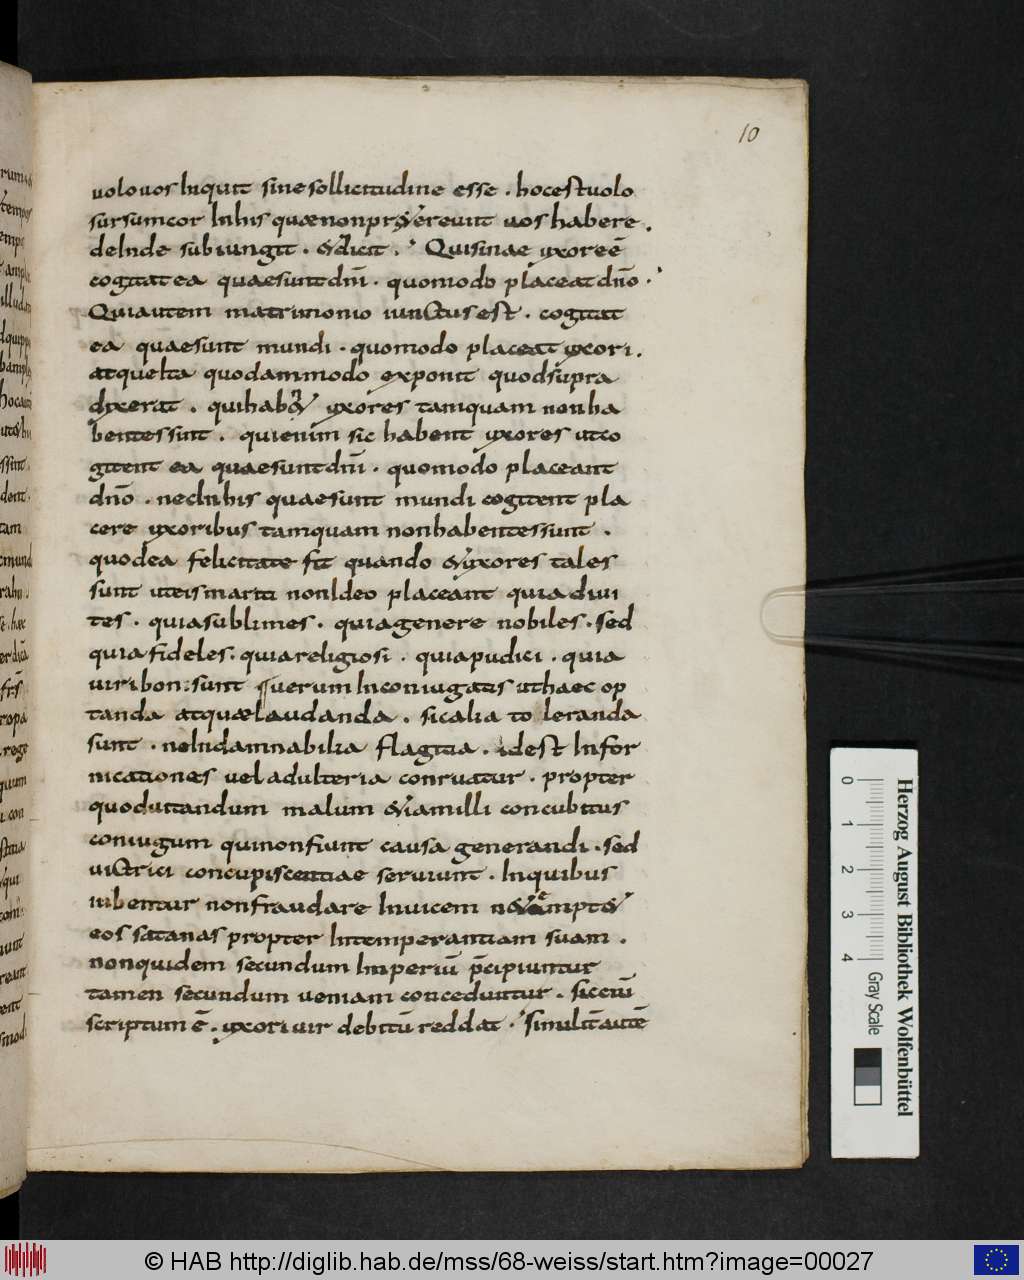 10
uolouos Inquit sinesollicitudine esse . hocestuolo
sursumcor Inhis quænonpr&ereunt uos habere .
deInde subiungit . &dicit . Quisinae uxoreē
cogitat ea quaesuntdn̄i . quomodo placeat dn̄o .
Quiautem matrimonio iunctus est . cogitat
ea quaesunt mundi . quomodo placeat uxori .
atqueIta quodammodo exponit quodsupra
dixerat . quihab& uxores tamquam non ha
bentes sint . quienim sic habent uxores utco
gitent ea quaesuntdn̄i . quomodo placeant
dn̄o . necInhis quaesunt mundi cogitent pla
cere uxoribus tamquam nonhabentessunt .
quodea felicitate fit quando &uxores tales
sunt uteis mariti nonIdeo placeant quia diui
tes . quiasublimes . quiagenere nobiles . sed
quia fideles . quiareligiosi . quiapudici . quia
uiri boni sunt uerum Inconiugatis uthaec op
tanda atquælaudanda . sicalia to leranda
sunt . neIndamnabilia flagitia . idest Infor
nicationes uel adulteria conruatur . propter
quoduitandum malum &iamilli concubitus
coniugum quinonfiunt causa generandi . sed
uictrici concupiscentiae seruiunt . Inquibus
iubentur nonfraudare Inuicem
eos satanas propter Intemperantiam suam .
nonquidem secundum Imperiū p̄cipiuntur
tamen secundum ueniam conceduntur . sic
scriptum ē . uxori uir debitū reddat . similit̄ autē
Herzog August Bibliothek Wolfenbüttel
0 1 2 3 4 Gray Scale
© HAB http://diglib.hab.de/mss/68-weiss/start.htm?image=00027